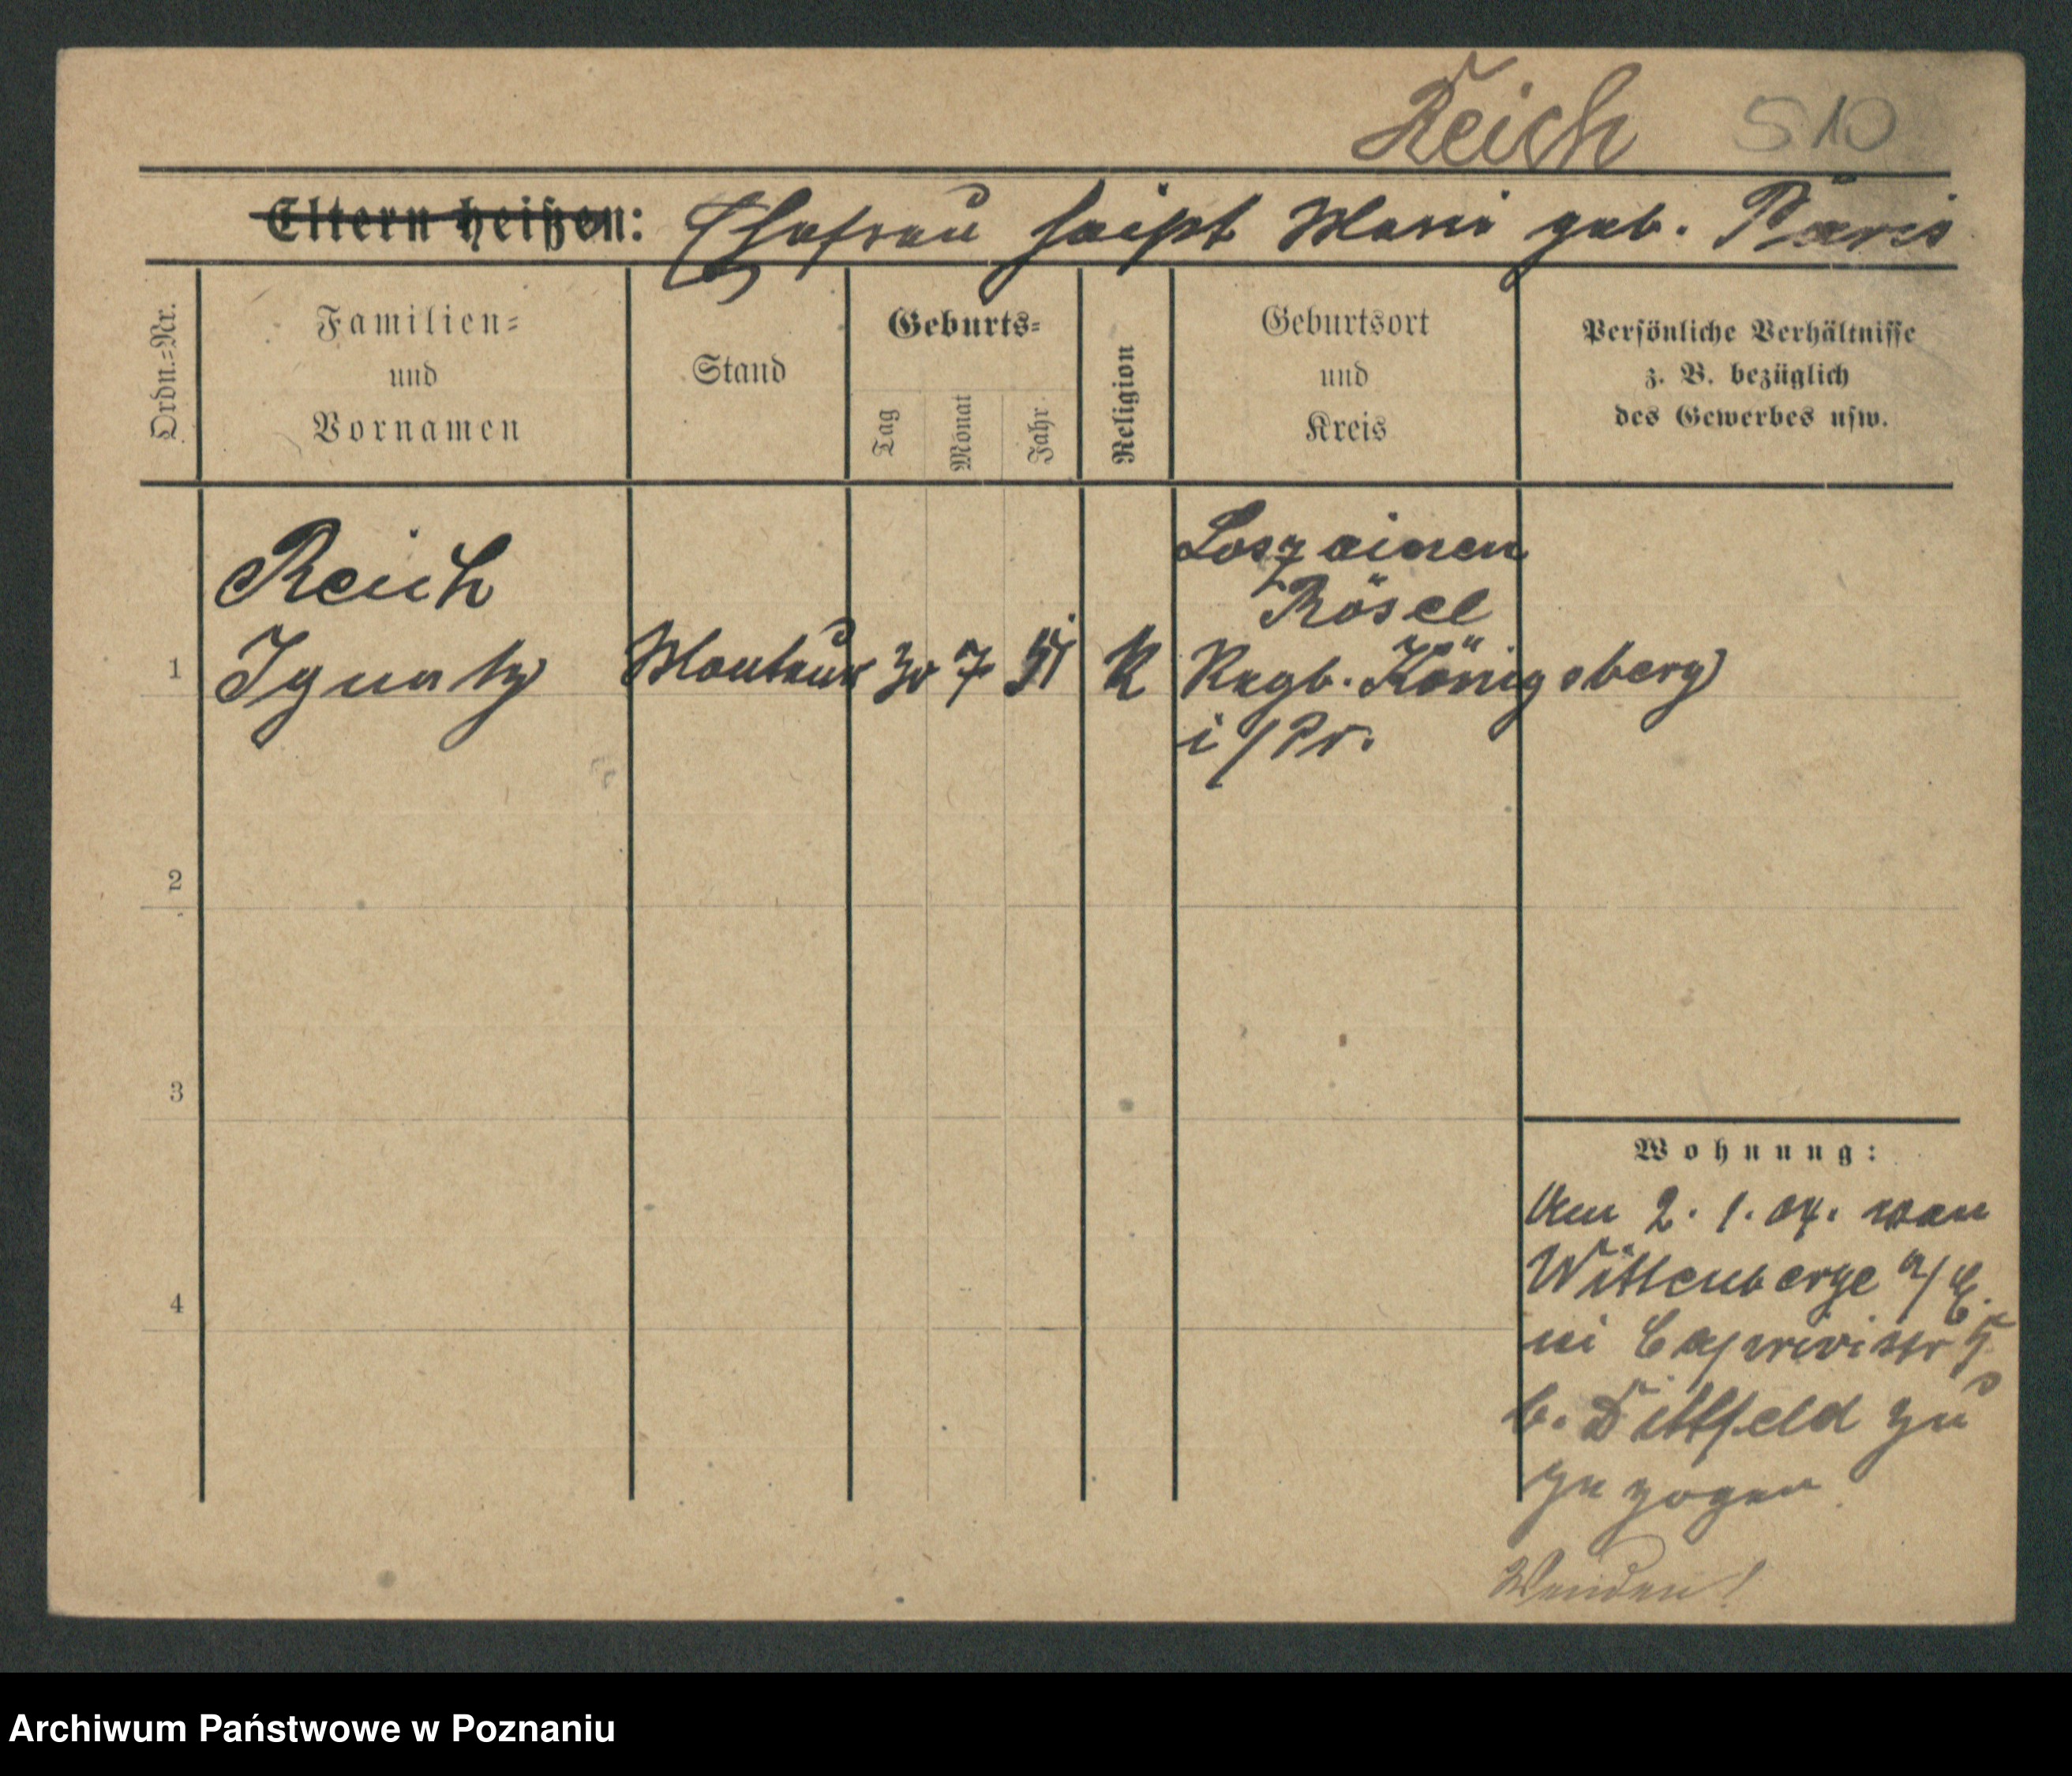 Reich 510
Eltern heißen: Ehefrau heißt Marie geb. Päris
Ordn.=Nr.
Familien=
und
Vornamen
Stand
Geburts=
Tag
Monat
Jahr
Religion
Geburtsort
und
Kreis
Persönliche Verhältnisse
z. B. bezüglich
des Gewerbes usw.
Reich
Ignatz
1
Monteur
30 7
K
Loszainen
Rösel
Regb. Königsberg
i/Pr.
2
3
4
Wohnung:
Am 2. 1. 04. von
Wittenberge a/E.
b. Dittfeld zu
gezogen
Wenden!
Archiwum Państwowe w Poznaniu